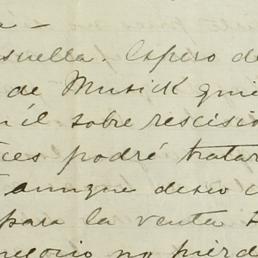 a –
suella. Espero de
de Musick quie
él sobre rescisio
ces podré tratar
aunque deseo c
para la venta
negocio no pierd